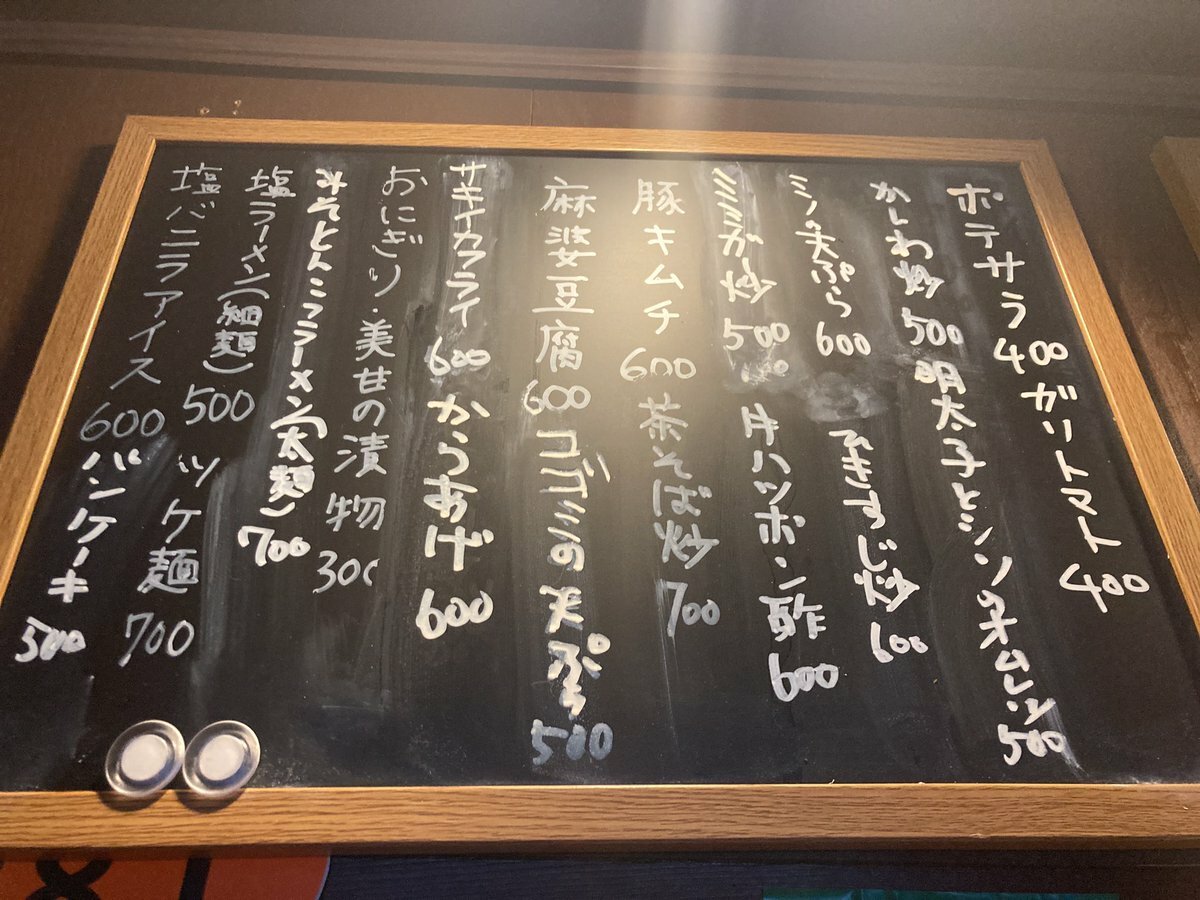 ポテサラ 400 ガリトマト 400
かしわ炒 500 明太子とシソのオムレツ 500
ミノの天ぷら 600 できすじ炒 600
ミミガ炒 500 牛ハツポン酢 600
豚キムチ 600 茶そば炒 700
麻婆豆腐 600 コゴミの天ぷら 500
サキイカフライ 600 からあげ 600
おにぎり・美甘の漬物 300
みそとんこラーメン(太麺) 700
塩ラーメン(細麺) 500 ツケ麺 700
塩バニラアイス 600 パンケーキ 500